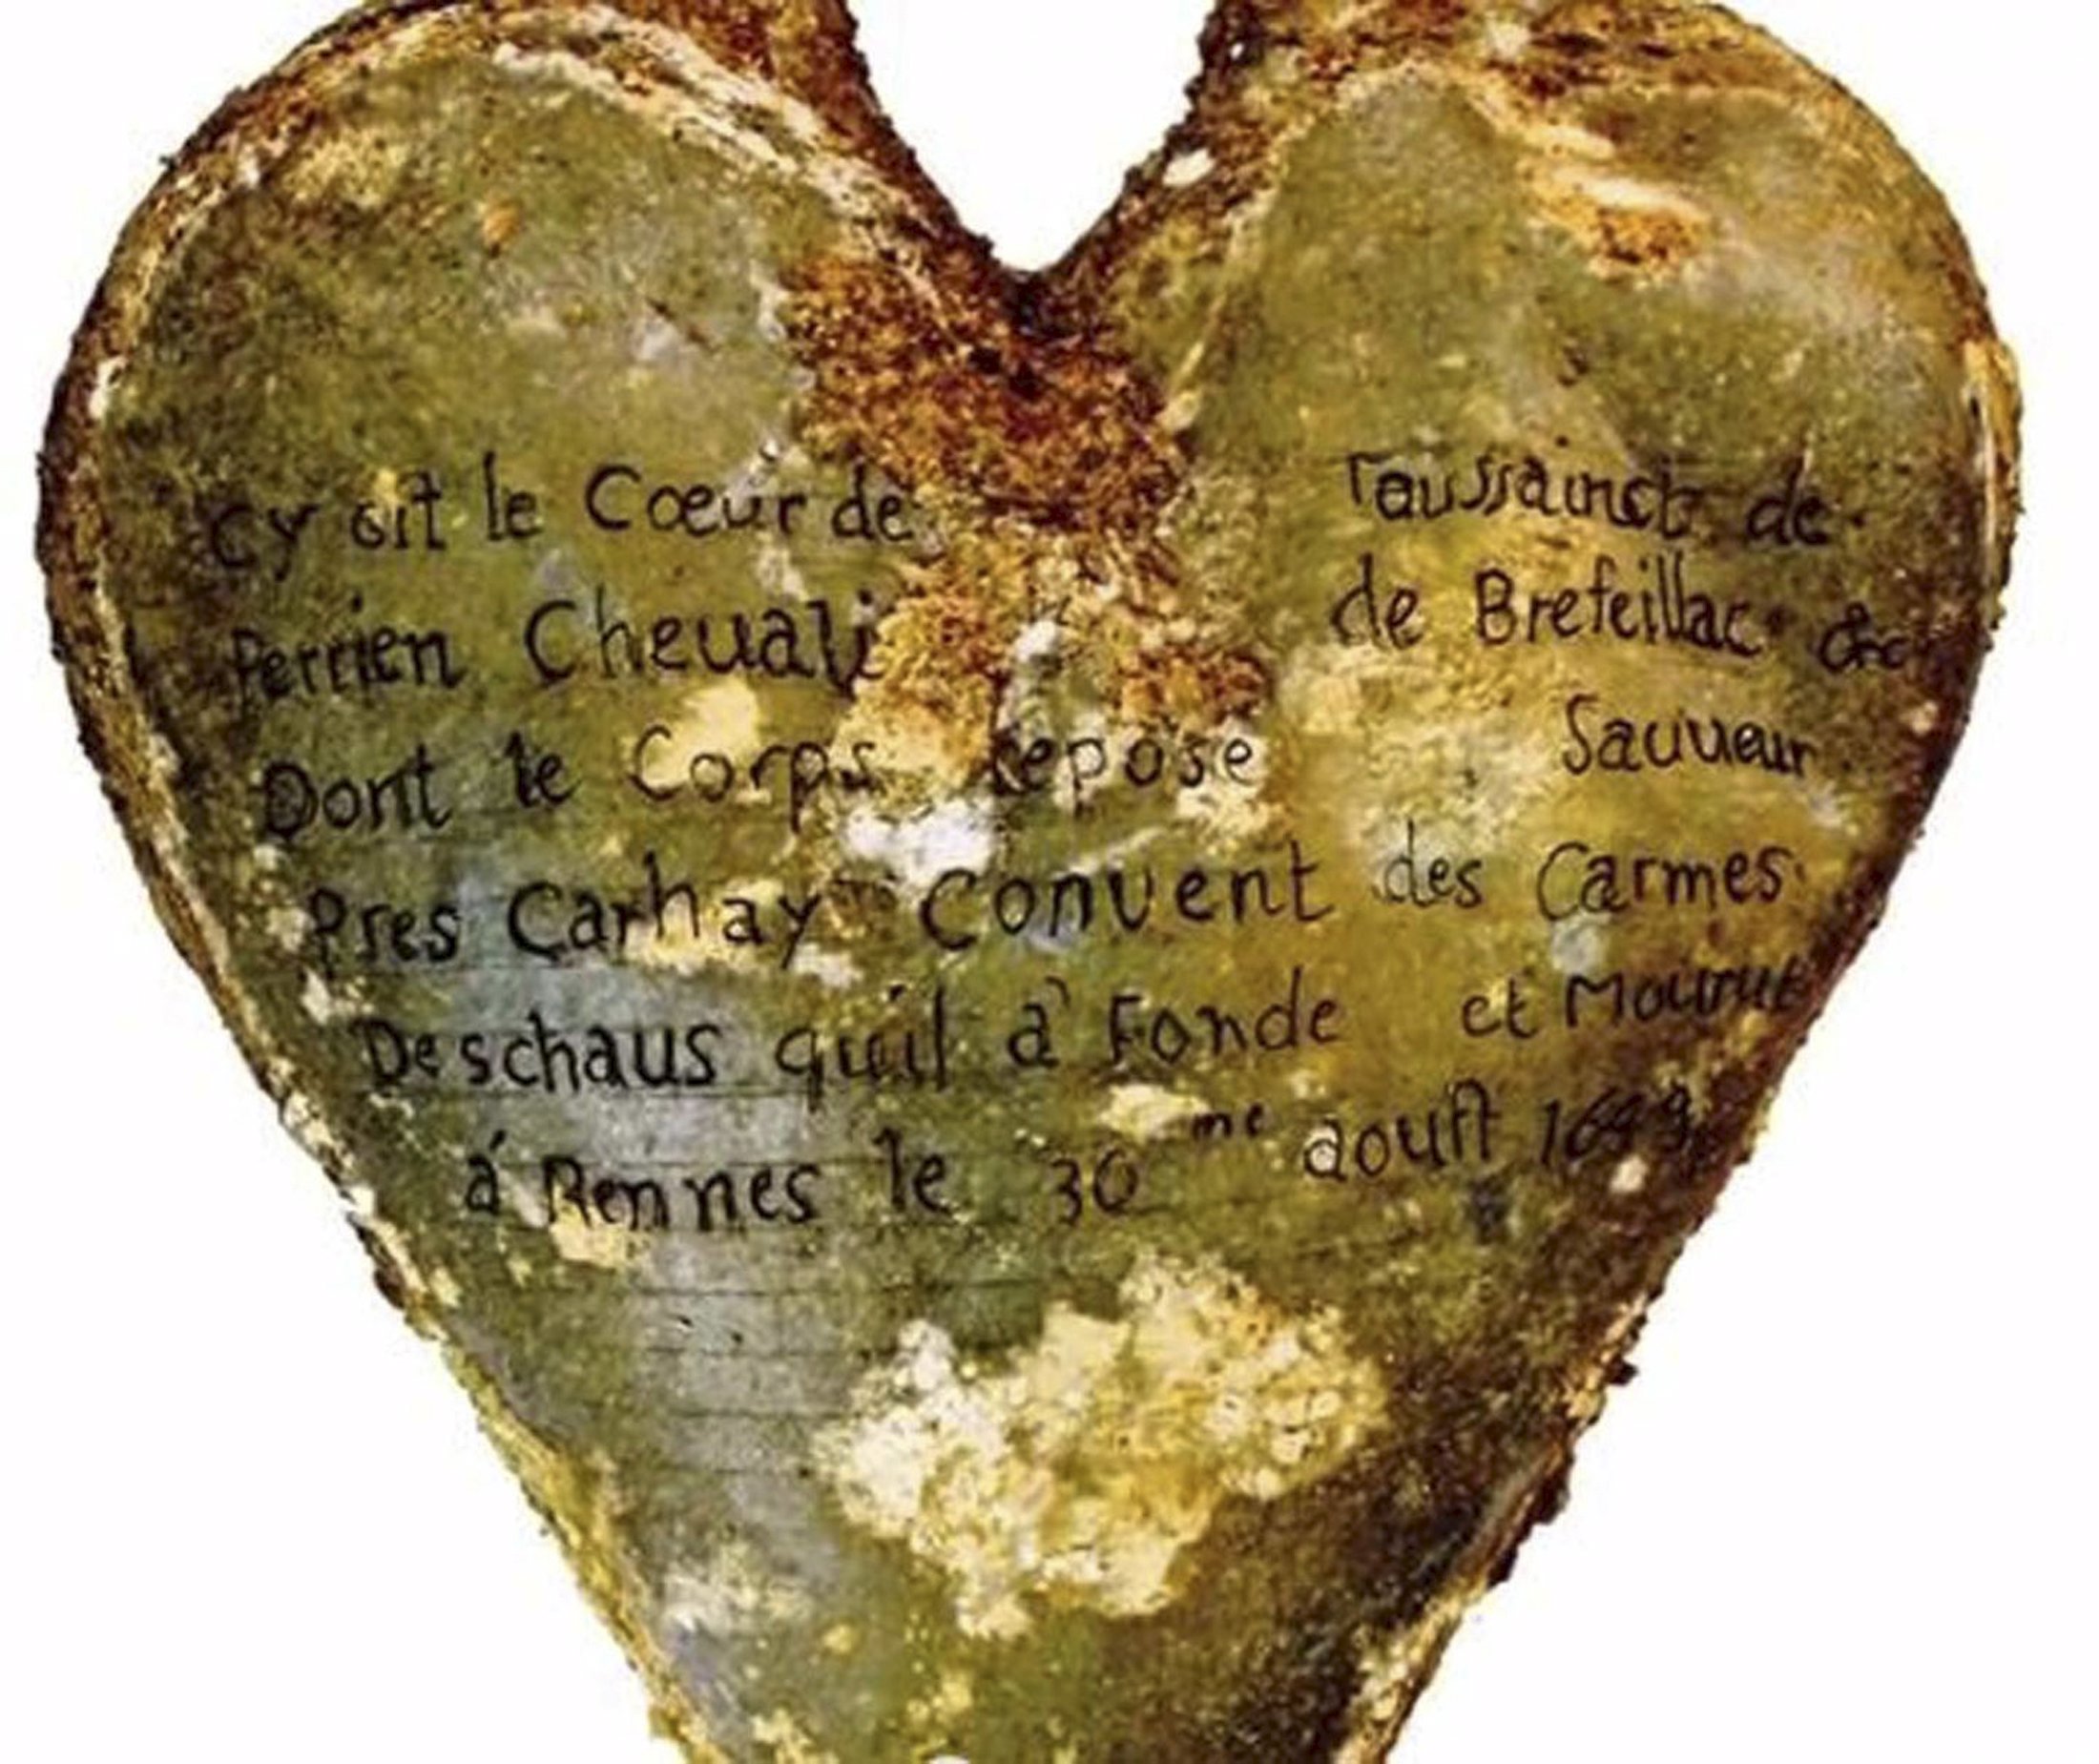 Cy git le Cœur de Toussainct de
Perrien Cheuali de Brefeillac &c
Dont le Corps repose Sauueur
Pres Carhay Convent des Carmes
Deschaus quil à Fonde et Mourut
á Rennes le 30me aoust 1649